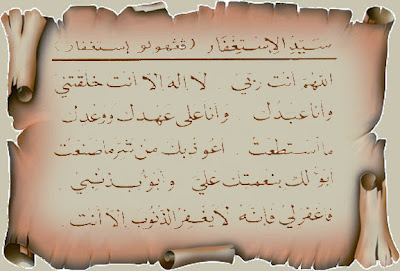 سَيِّدُ الْاِسْتِغْفَار (ڤڠهولو إستغفار)
اللهم أنت ربي لا إله إلا أنت خلقتني
وأنا عبدك وأنا على عهدك ووعدك
ما استطعت أعوذ بك من شر ما صنعت
أبوء لك بنعمتك علي وأبوء بذنبي
فاغفر لي فإنه لا يغفر الذنوب إلا أنت